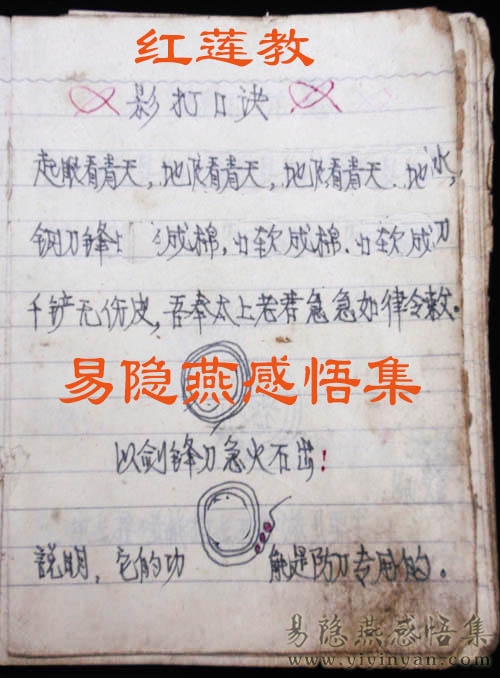 红莲教
影打口诀
起眼看青天，地派看青天，地派看青天，地水，
钢刀锋 成棉，软成棉、软成刀
千铲无伤皮，吾奉太上老君急急如律令敕。
易隐燕感悟集
以剑锋刀急火石出！
説明，它的功 能是防刀专用的。
易隐燕感悟集
www.yiyinyan.com